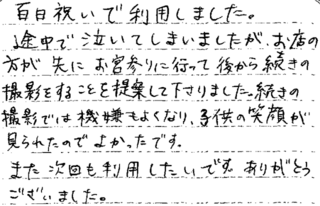 百日祝いで利用しました。
途中で泣いてしまいましたが、お店の
方が先にお宮参りに行って後から続きの
撮影をすることを提案して下さりました。続きの
撮影では機嫌もよくなり、子供の笑顔が
見られたのでよかったです。
また次回も利用したいです。ありがとう
ございました。